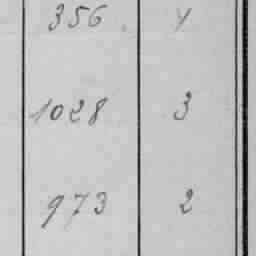 356 4
1028 3
973 2